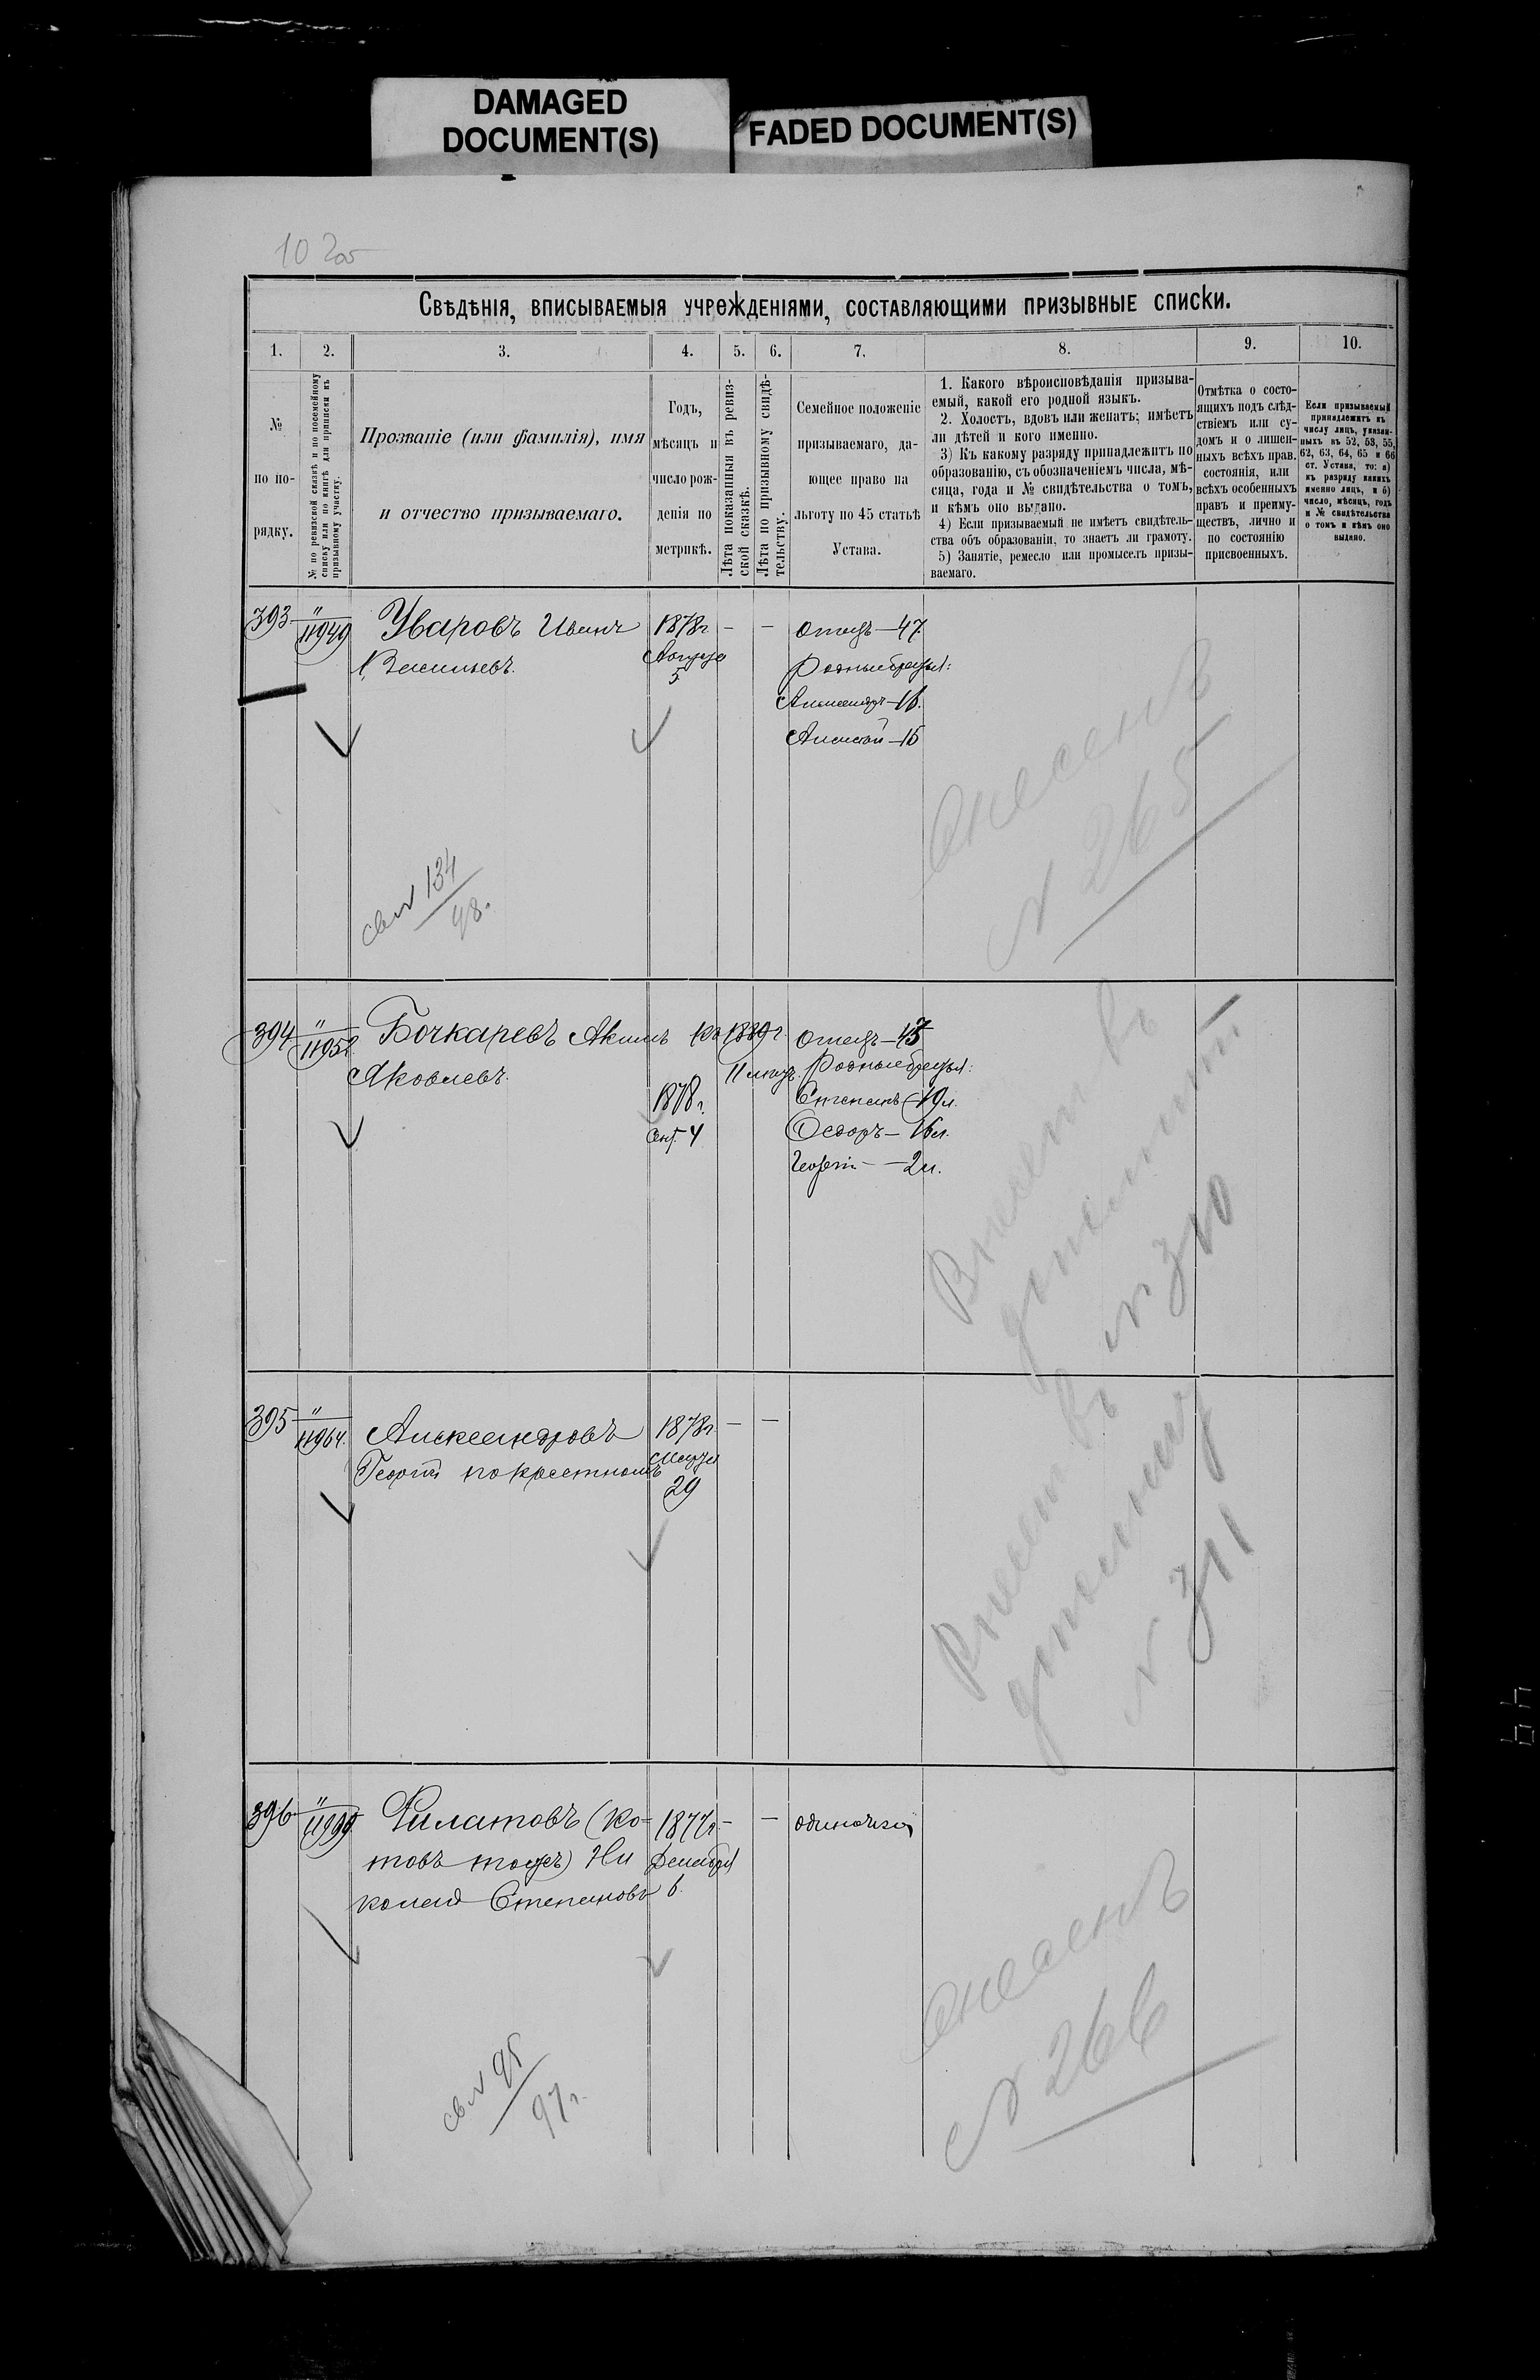 DAMAGED
DOCUMENT(S)
FADED DOCUMENT(S)
Свѣдѣнія, вписываемыя учрежденіями, составляющими призывные списки.
1. 2. 3. 4. 5. 6. 7. 8. 9. 10.
№
по по-
рядку.
№ по ревизской сказкѣ и по посемейному
списку или по книгѣ для приписки къ
призывному участку.
Прозваніе (или фамилія), имя
и отчество призываемаго.
Годъ,
мѣсяцъ и
число рож-
денія по
метрикѣ.
Лѣта показанныя въ ревиз-
ской сказкѣ.
Лѣта по призывному свидѣ-
тельству.
Семейное положеніе
призываемаго, да-
ющее право на
льготу по 45 статьѣ
Устава.
1. Какого вѣроисповѣданія призыва-
емый, какой его родной языкъ.
2. Холостъ, вдовъ или женатъ; имѣетъ
ли дѣтей и кого именно.
3) Къ какому разряду принадлежитъ по
образованію, съ обозначеніемъ числа, мѣ-
сяца, года и № свидѣтельства о томъ,
и кѣмъ оно выдано.
4) Если призываемый не имѣетъ свидѣтель-
ства объ образованіи, то знаетъ ли грамоту.
5) Занятіе, ремесло или промыселъ призы-
ваемаго.
Отмѣтка о состо-
ящихъ подъ слѣд-
ствіемъ или су-
домъ и о лишен-
ныхъ всѣхъ прав.
состоянія, или
всѣхъ особенныхъ
правъ и преиму-
ществъ, лично и
по состоянію
присвоенныхъ.
Если призываемый
принадлежитъ къ
числу лицъ, указан-
ныхъ въ 52, 53, 55,
62, 63, 64, 65 и 66
ст. Устава, то: а)
къ разряду какихъ
именно лицъ, и б)
число, мѣсяцъ, годъ
и № свидѣтельства
о томъ и кѣмъ оно
выдано.
393 " 11949 Уваровъ Иванъ 1878г - - отецъ - 47
Васильевъ. Августа Родные братья:
5 Александръ - 18.
Алексѣй - 15
Внесенъ
№ 265
св № 134
98.
394 " 11952 Бочкаревъ Акимъ къ 1889г. отецъ - 45
Яковлевъ. 11 лѣтъ. Родные братья:
1878г. Степанъ - 19 л.
Сент. 4 Ѳедоръ - 16 л.
Георгій - 2 л.
№ 310
395 " 11964. Александровъ 1878г. - -
Георгій по крестному Марта
29
№ 311
396 " Филатовъ (Ко- 1877г. - - одиночка
товъ тоже) Ни Декабря
колай Степановъ 6.
Внесенъ
№ 266
св № 95
97 г.